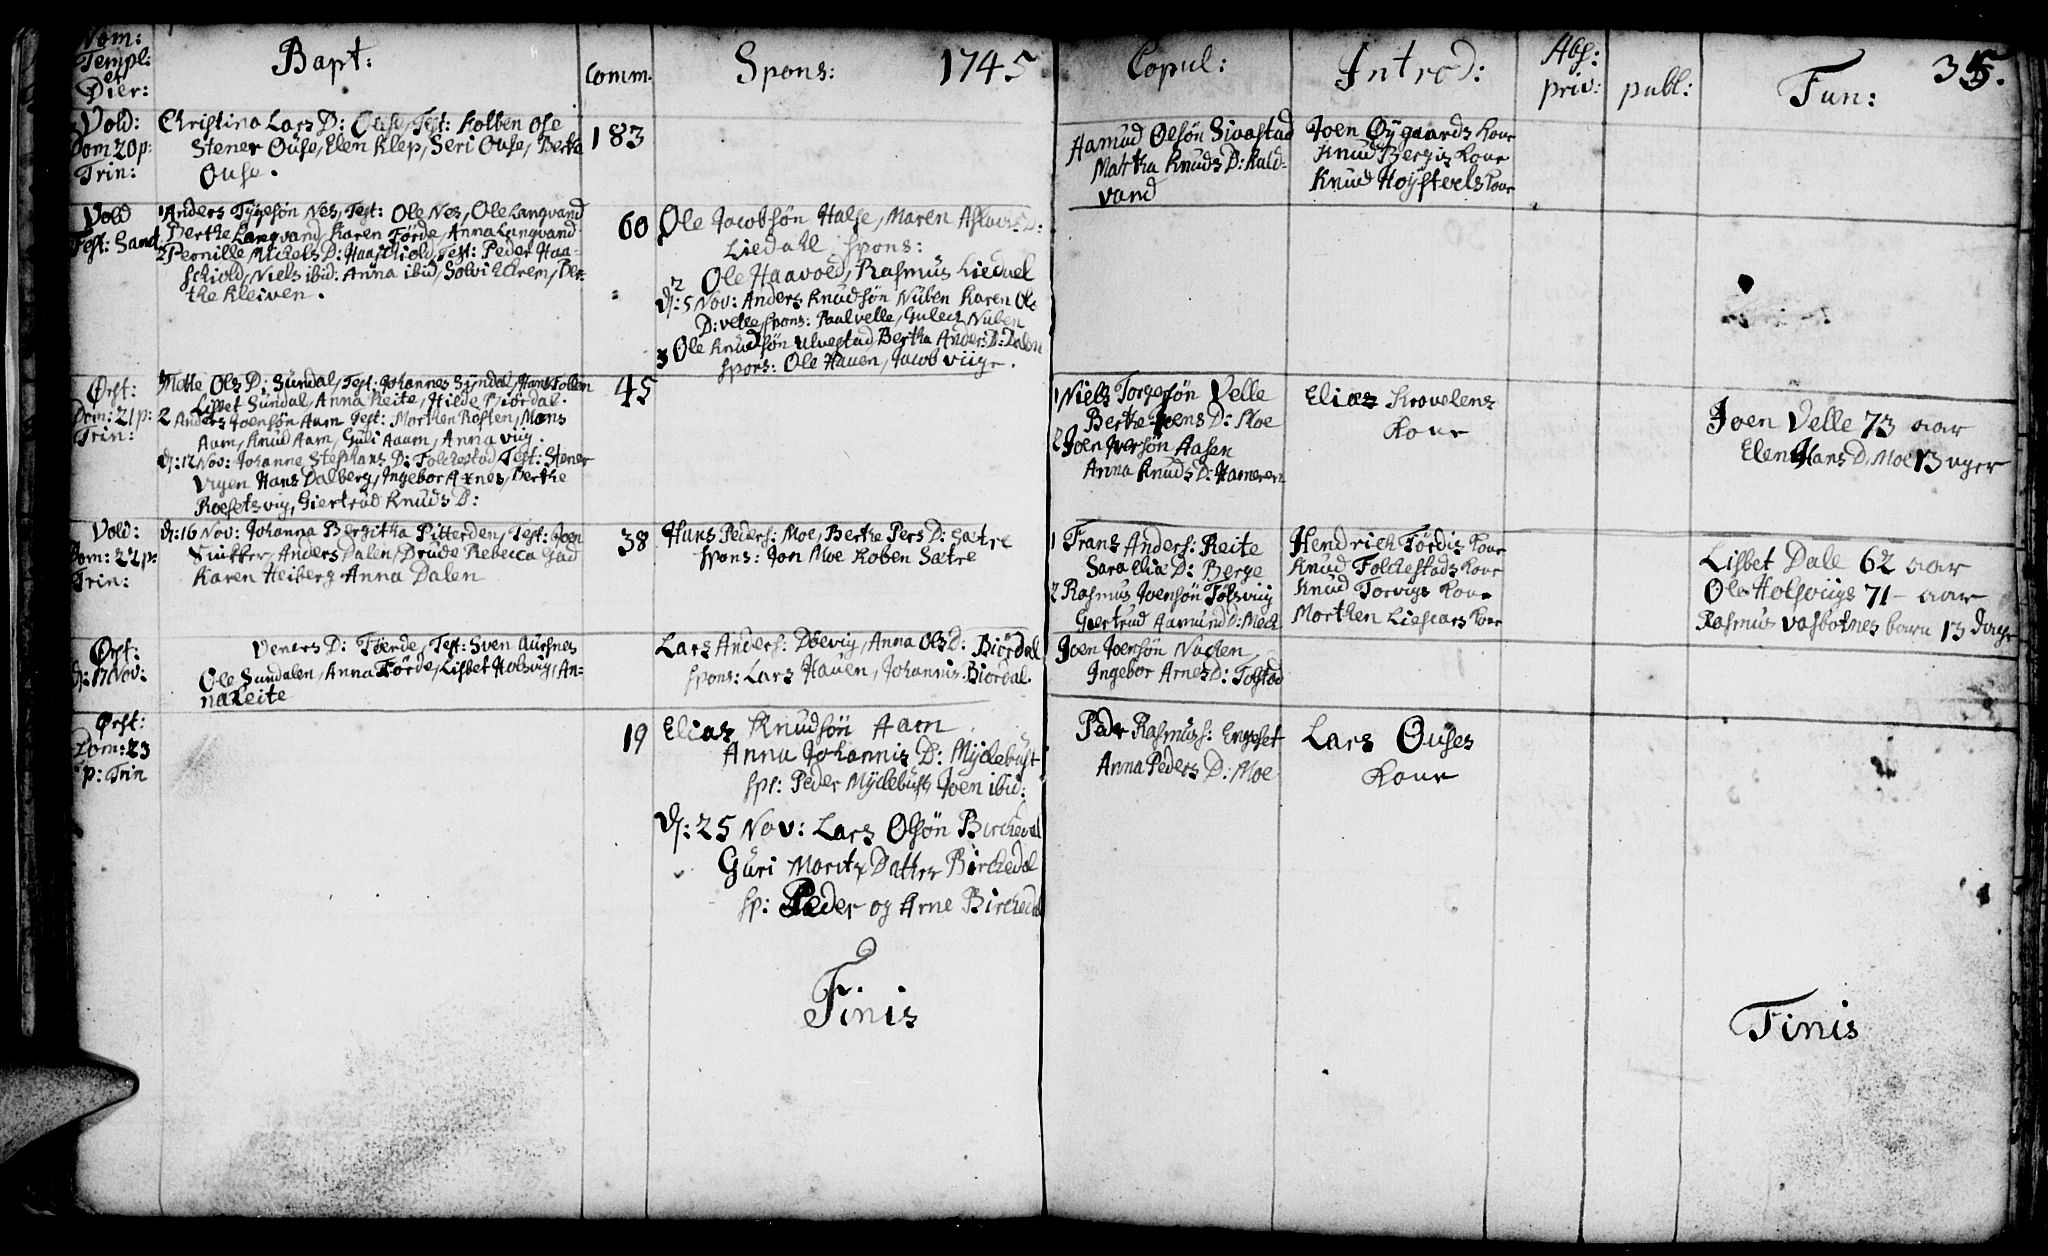 Nom:
Templ:
et
Dier:
Bapt:
Comm.
Spons:
1745
Copul:
Introd:
Abs:
priv:
publ:
Fun:
35.
Vold:
Dom 20 p:
Trin:
Christina Lars D: Ouse, Test: Kolben Ose
Stener Ouse, Elen Klep, Seri Ouse, Berthe
Ouse.
183
Aamud Olsøn Sivastad
Martha Knuds D: Kald-
vand
Joen Øygaards Kone
Knud Bergis Kone
Knud Høysteels Kone
Vold
Fest: Sanct
1 Anders Tygesøn Nes, Test: Ole Nes, Ole Langvand
Berthe Langvand, Karen Førde, Anna Langvand
2 Pernille Michels D: Haaschiold, Test: Peder Haa-
schiold, Niels ibid: Anna ibid, Solvi Ekrem, Ber-
the Kleiven.
60
Ole Jacobsøn Halse, Maren Aslachs D:
Liedahl spons:
Ole Haavold, Rasmus Liedael
2
d: 5 Nov: Anders Knudsøn Nuben Karen Ole
D: velle, spons: Paul velle, Gulech Nuben
3 Ole Knudsøn Ulvestad, Bertha Anders D: Dalen
spons: Ole Hauen, Jacob Viige.
Ørst:
Dom: 21 p:
Trin:
1 Mette Ols D: Sundal, Test: Johannes Syndal, Hans Follen
Lisbet Sundal, Anna Reite, Hilde Biørdal.
2 Anders Joensøn Aam Test: Morthen Rosten, Mons
Aam, Knud Aam, Guli Aaam, Anna Viig.
d: 12 Nov: Johanne Stephans D: Folchestad Test: Stener
Vigen Hans Dalberg, Ingebor Axnes, Berthe
Roesetsvig, Giertrud Knuds D:
45
1 Niels Torgersøn Velle
Berthe Joens D: Moe
2 Joen Iversøn Aasen
Anna Knuds D: Hameren
Elias Krovelens
Kone
Joen Velle 73 aar
Elen Hans D. Moe 13 uger
Vold:
Dom: 22 p:
Trin:
d: 16 Nov: Johanna Bergitha Pitterden, Test: Joen
Snikker, Anders Dalen, Drude Rebecca Gad
Karen Heiberg Anna Dalen
38
Hans Peders: Moe, Berthe Pers D: Sætre
spons: Jon Moe Koben Sætre
1 Frans Anders: Reite
Sara Eliæ D: Berge
2 Rasmus Joensøn Følsviig
Giertrud Aamund D: Mech
Hendrich Førdis Kone
Knud Folchestads Kone
Knud Torvigs Kone
Morthen Liescars Kone
Lisbet Dale 62 aar
Ole Holsviigs 71- aar
Rasmus Vasbotnes barn 13 dage
Ørst:
d: 17 Nov:
Veners D: Føerde, Test: Sven Aursnes
Ole Sundalen, Anna Førde, Lisbet Holsvig, An-
na Leite
Lars Anders: Døevig, Anna Ols D: Biørdal
spons: Lars Hauen, Johannis Biordal.
Joen Joensøn Nachen
Ingebor Arnes D: Tostad
Ørst:
Dom: 23
p: Trin
19
Elias Knudsøn Aam
Anna Johannis D: Myclebust
sps: Peder Myclebust, Joen ibid:
d: 25 Nov: Lars Olsøn Bircheval
Guri Moritz Datter Birchedal
sp: Peder og Arne Birchedal
Pedr Rasmuss: Engeset
Anna Peders D: Moe
Lars Ouses
Kone
Finis
Finis